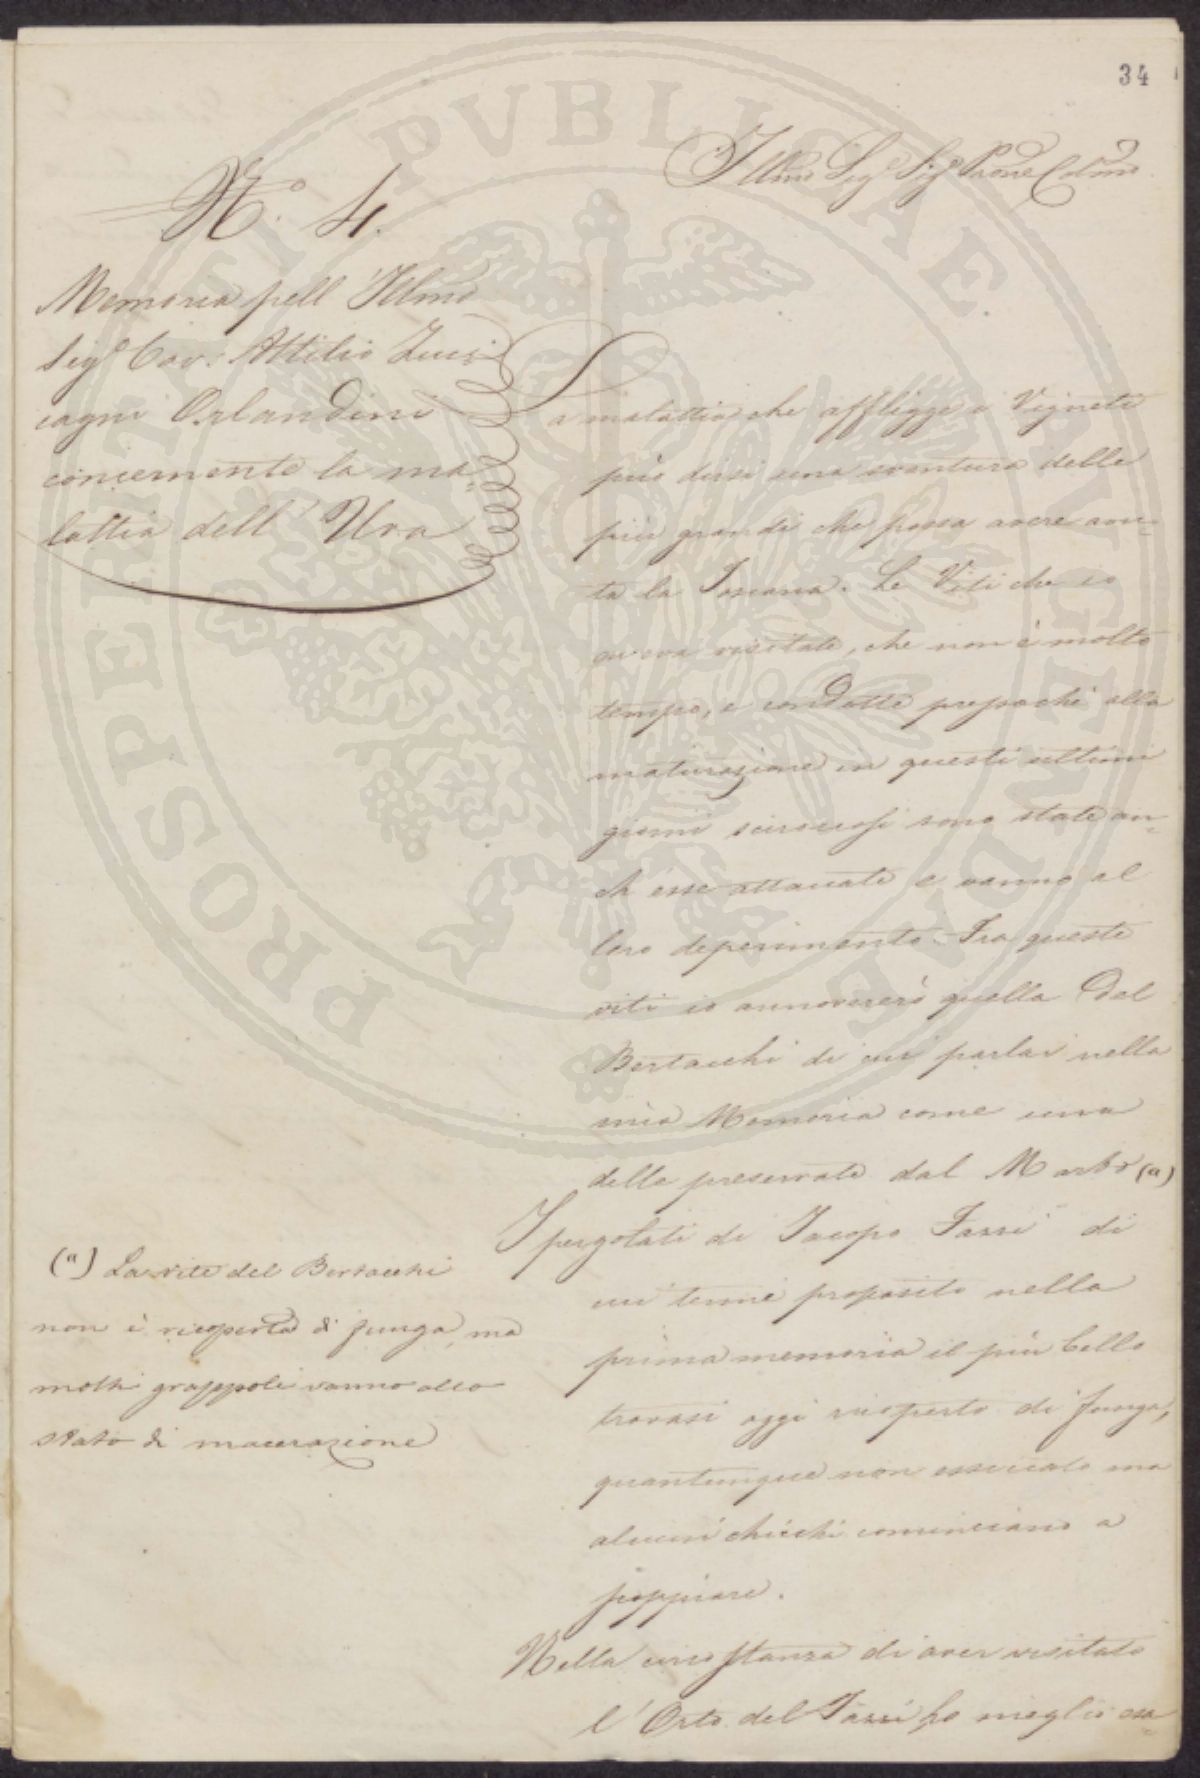 34
Illmo Sigr Sigr Prone Colmo
N.o 4.
Memoria pell' Illmo
Sigr Cav: Attilio Zucc
cagni Orlandini
concernente la ma=
lattia dell' Uva
La malattia che affligge i Vigneti
può dirsi una sventura delle
più grandi che possa avere avu=
ta la Toscana. Le Viti che io
aveva visitate, che non è molto
tempo, e condotte pressochè alla
maturazione in questi ultimi
giorni sciroccosi sono state an=
ch' esse attaccate e vanno al
loro deperimento. Fra queste
viti io annovererò quella del
Bertacchi di cui parlai nella
mia Memoria come una
delle preservate dal Marbo (a)
I pergolati di Jacopo Tassi di
cui tenni proposito nella
prima memoria il più bello
trovasi oggi ricoperto di funga,
quantunque non essiccato ma
alcuni chicchi cominciano a
scoppiare.
Nella circostanza di aver visitato
l' Orto del Tassi ho meglio osa=
(a) La vite del Bertacchi
non è ricoperta di funga, ma
molti grappoli vanno allo
stato di macerazione
PROSPERITATI PVBLICAE AVGENDAE